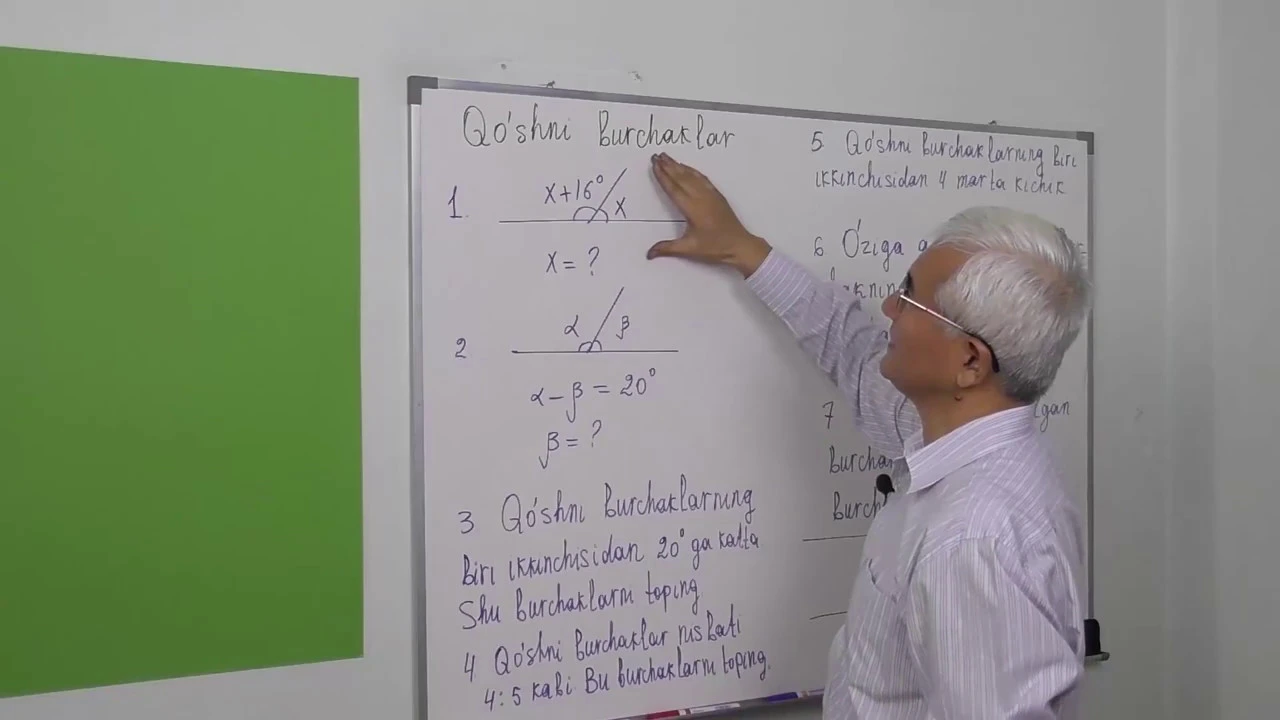 Qo'shni Burchaklar
1.
x+16° x
x = ?
2
α β
α – β = 20°
β = ?
3 Qo'shni Burchaklarning
Biri ikkinchisidan 20° ga katta
Shu burchaklarni toping
4 Qo'shni Burchaklar nisbati
4:5 kabi. Bu burchaklarni toping.
5 Qo'shni Burchaklarning Biri
ikkinchisidan 4 marta kichik
6 O'ziga
7